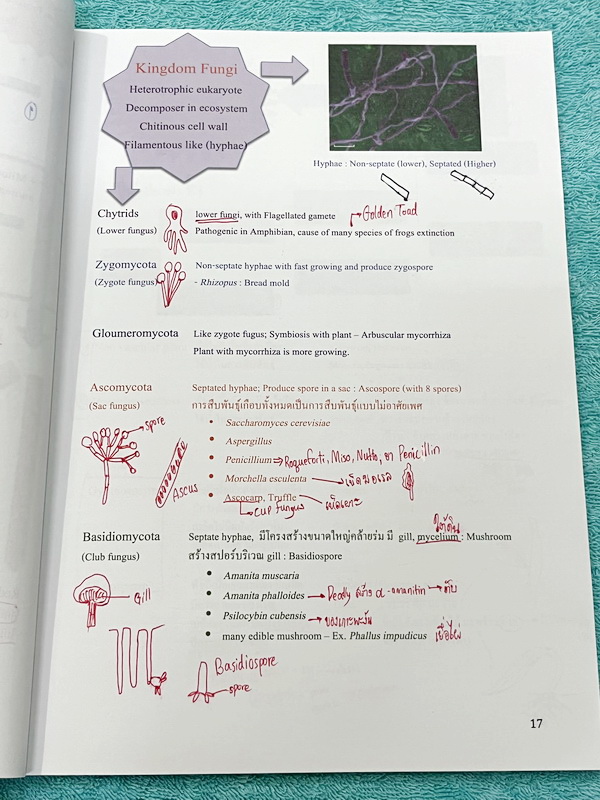 Kingdom Fungi
Heterotrophic eukaryote
Decomposer in ecosystem
Chitinous cell wall
Filamentous like (hyphae)
Hyphae : Non-septate (lower), Septated (Higher)
Chytrids
(Lower fungus)
lower fungi, with Flagellated gamete → Golden Toad
Pathogenic in Amphibian, cause of many species of frogs extinction
Zygomycota
(Zygote fungus)
Non-septate hyphae with fast growing and produce zygospore
- Rhizopus : Bread mold
Gloumeromycota
Like zygote fugus; Symbiosis with plant – Arbuscular mycorrhiza
Plant with mycorrhiza is more growing.
Ascomycota
(Sac fungus)
Septated hyphae; Produce spore in a sac : Ascospore (with 8 spores)
การสืบพันธุ์เกือบทั้งหมดเป็นการสืบพันธุ์แบบไม่อาศัยเพศ
• Saccharomyces cerevisiae
• Aspergillus
• Penicillium → Roqueforti, Miso, Natto, ยา Penicillin
• Morchella esculenta → เห็ดมอเรล
• Ascocarp, Truffle
cup fungus
spore
Ascus
Basidiomycota
(Club fungus)
ใต้ดิน
Septate hyphae, มีโครงสร้างขนาดใหญ่คล้ายร่ม มี gill, mycelium : Mushroom
สร้างสปอร์บริเวณ gill : Basidiospore
• Amanita muscaria
• Amanita phalloides → Deadly สร้าง α-amanitin → ตับ
• Psilocybin cubensis →
• many edible mushroom – Ex. Phallus impudicus เยื่อไผ่
Gill
Basidiospore
spore
17